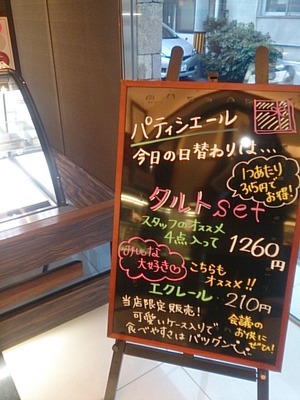 パティシエール
今日の日替わりは…
1つあたり
315円で
お得!
タルトset
スタッフのオススメ
4点入って
1260円
みんな
大好き♡
こちらも
オススメ!!
エクレール 210円
当店限定販売!
可愛いケース入りで
食べやすさはバツグン
会議の
お供に
ぜひ!